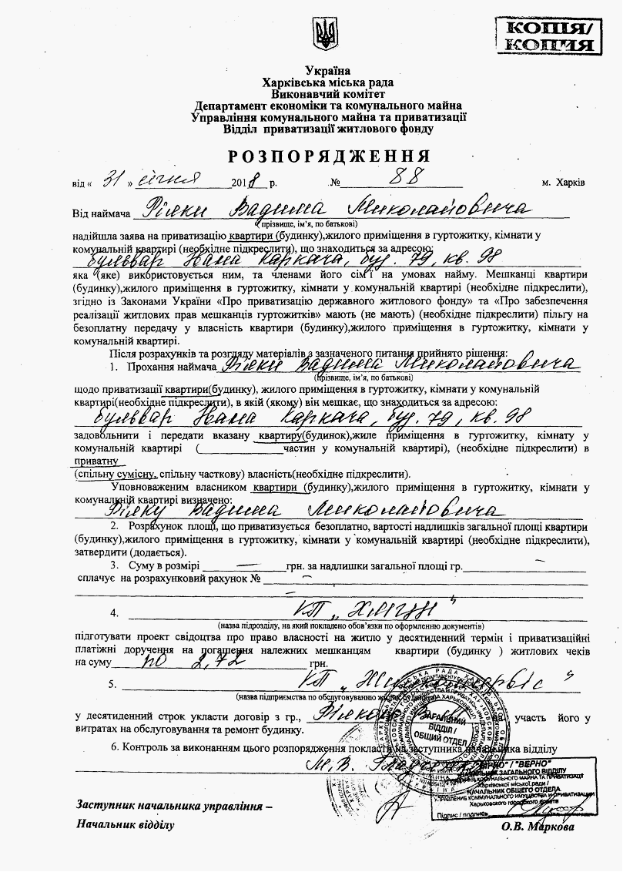 КОПІЯ/
КОПИЯ
Україна
Харківська міська рада
Виконавчий комітет
Департамент економіки та комунального майна
Управління комунального майна та приватизації
Відділ приватизації житлового фонду
РОЗПОРЯДЖЕННЯ
від « 31 » січня 2018 р. № 88 м. Харків
Від наймача Вадима Миколайовича
(прізвище, ім'я, по батькові)
надійшла заява на приватизацію квартири (будинку),жилого приміщення в гуртожитку, кімнати у
комунальній квартирі (необхідне підкреслити), що знаходиться за адресою:
бульвар Івана Каркача, буд. 79, кв. 98
яка (яке) використовується ним, та членами його сім'ї на умовах найму. Мешканці квартири
(будинку),жилого приміщення в гуртожитку, кімнати у комунальній квартирі (необхідне підкреслити),
згідно із Законами України «Про приватизацію державного житлового фонду» та «Про забезпечення
реалізації житлових прав мешканців гуртожитків» мають (не мають) (необхідне підкреслити) пільгу на
безоплатну передачу у власність квартири (будинку),жилого приміщення в гуртожитку, кімнати у
комунальній квартирі.
Після розрахунків та розгляду матеріалів з зазначеного питання прийнято рішення:
1. Прохання наймача Вадима Миколайовича
(прізвище, ім'я, по батькові)
щодо приватизації квартири(будинку), жилого приміщення в гуртожитку, кімнати у комунальній
квартирі(необхідне підкреслити), в якій (якому) він мешкає, що знаходиться за адресою:
бульвар Івана Каркача, буд. 79, кв. 98
задовольнити і передати вказану квартиру(будинок),жиле приміщення в гуртожитку, кімнату у
комунальній квартирі (____________частин у комунальній квартирі), (необхідне підкреслити) в
приватну
(спільну сумісну, спільну часткову) власність(необхідне підкреслити).
Уповноваженим власником квартири (будинку),жилого приміщення в гуртожитку, кімнати у
комунальній квартирі визначено:
Вадима Миколайовича
2. Розрахунок площі, що приватизується безоплатно, вартості надлишків загальної площі квартири
(будинку),жилого приміщення в гуртожитку, кімнати у комунальній квартирі (необхідне підкреслити),
затвердити (додається).
3. Суму в розмірі — грн. за надлишки загальної площі гр. —
сплачує на розрахунковий рахунок № —
4. КП „
(назва підрозділу, на який покладено обов'язки по оформленню документів)
підготувати проект свідоцтва про право власності на житло у десятиденний термін і приватизаційні
платіжні доручення на погашення належних мешканцям квартири (будинку ) житлових чеків
на суму по 2,72 грн.
5. КП „Жилкомсервіс"
(назва підприємства по обслуговуванню
у десятиденний строк укласти договір з гр., участь його у
витратах на обслуговування та ремонт будинку.
6. Контроль за виконанням цього розпорядження покласти на заступника начальника відділу
ЗАГАЛЬНИЙ
ВІДДІЛ /
ОБЩИЙ ОТДЕЛ
"ВІРНО" / "ВЕРНО"
НАЧАЛЬНИК ЗАГАЛЬНОГО ВІДДІЛУ
Харківської міської ради /
НАЧАЛЬНИК ОБЩЕГО ОТДЕЛА
Харьковского городского совета
Підпис / подпись
Заступник начальника управління –
Начальник відділу О.В. Маркова